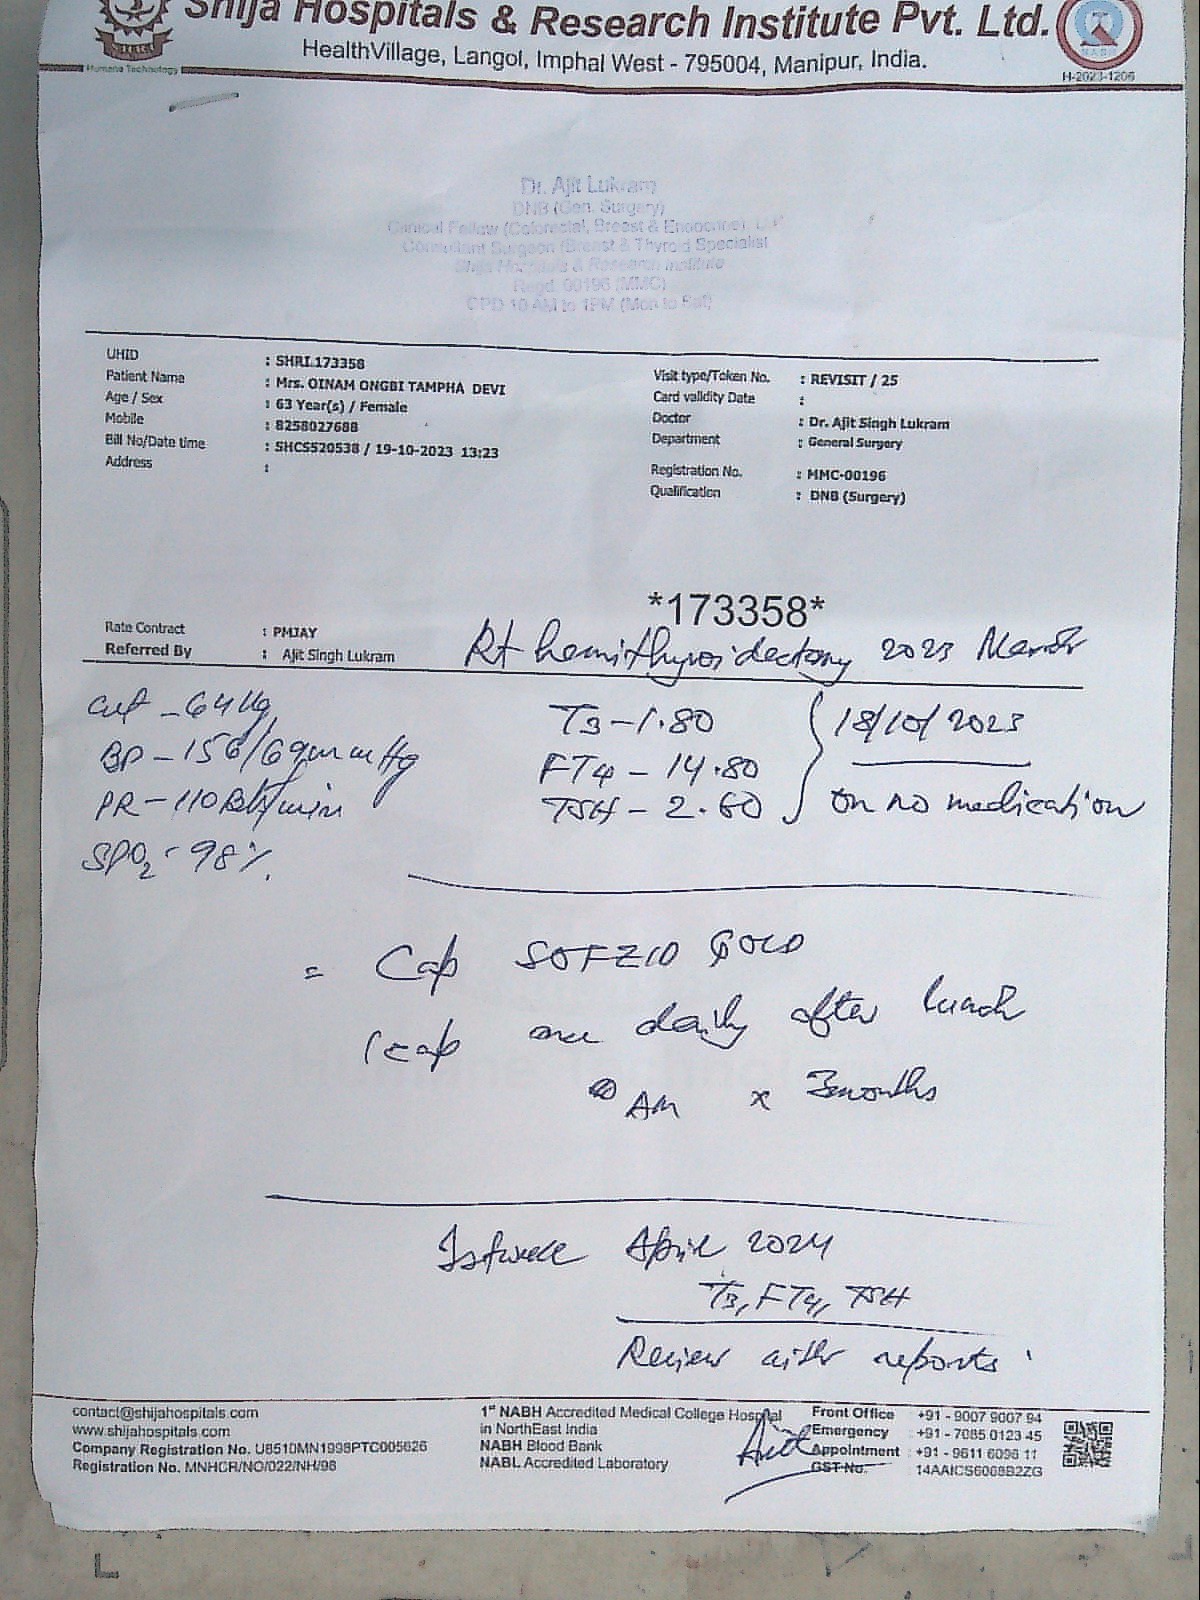 Shija Hospitals & Research Institute Pvt. Ltd.
HealthVillage, Langol, Imphal West - 795004, Manipur, India.
Humane Technology
H-2023-1206
Dr. Ajit Lukram
DNB (Gen. Surgery)
Clinical Fellow (Colorectal, Breast & Endocrine),
Consultant Surgeon (Breast & Thyroid Specialist
Shija Hospitals & Research Institute
Regd. 00196 (MMC)
OPD 10 AM to 1PM (Mon to Sat)
UHID : SHRI.173358
Patient Name : Mrs. OINAM ONGBI TAMPHA DEVI
Age / Sex : 63 Year(s) / Female
Mobile : 8258027688
Bill No/Date time : SHCS520538 / 19-10-2023 13:23
Address :
Visit type/Token No. : REVISIT / 25
Card validity Date :
Doctor : Dr. Ajit Singh Lukram
Department : General Surgery
Registration No. : MMC-00196
Qualification : DNB (Surgery)
*173358*
Rate Contract : PMJAY
Referred By : Ajit Singh Lukram
Rt hemithyroidectomy 2023 March
Wt - 64 Kg
BP - 156/69 mm Hg
PR - 110 Bts/min
SPO2 - 98%.
T3 - 1.80
FT4 - 14.80
TSH - 2.60
18/10/2023
on no medication
= Cap SOFZIO GOLD
1 cap once daily after lunch
AM x 3months
1st week April 2024
T3, FT4, TSH
Review with reports
contact@shijahospitals.com
www.shijahospitals.com
Company Registration No. U8510MN1998PTC005626
Registration No. MNHCR/NO/022/NH/98
1st NABH Accredited Medical College Hospital
in NorthEast India
NABH Blood Bank
NABL Accredited Laboratory
Front Office +91 - 9007 9007 94
Emergency +91 - 7085 0123 45
Appointment +91 - 9611 6096 11
GST No. 14AAICS6008B2ZG